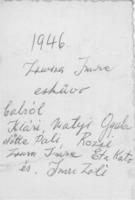 1946.
Imre
esküvő
balról
Klári, Matyi Gyula
Pali, Rozsi
Imre Eta Kató
és. Imre Zoli